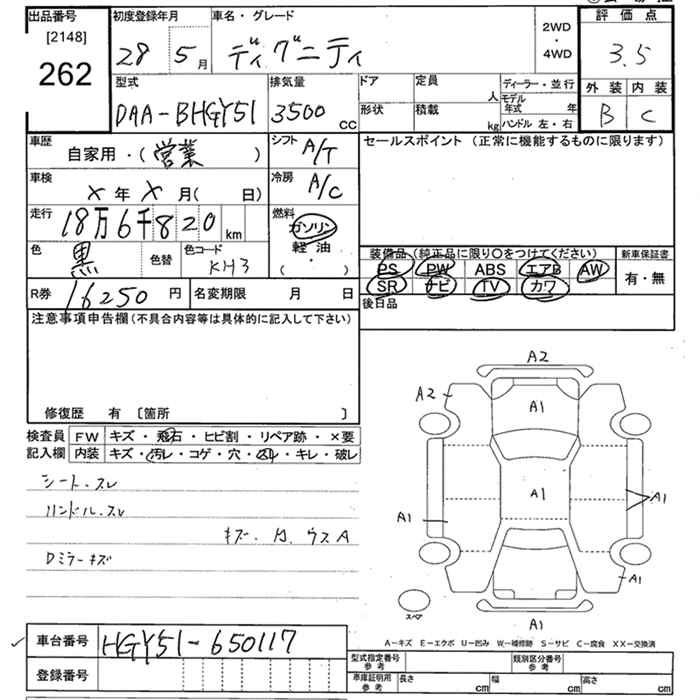 出品番号
[2148]
262
初度登録年月
28 5月
車名・グレード
ディグニティ
2WD
・
4WD
評価点
3.5
外装 内装
B C
型式
DAA-BHGY51
排気量
3500 CC
ドア
形状
定員
人
積載
kg
ディーラー・並行
モデル年式 年
ハンドル 左・右
車歴
自家用・(営業)
シフト
A/T
セールスポイント (正常に機能するものに限ります)
車検
X年X月( 日)
冷房
A/C
走行
18万6千820 km
燃料
ガソリン
軽油
( ・ )
色
黒
色替
色コード
KH3
装備品(純正品に限り〇をつけてください)
PS PW ABS エアB AW
SR ナビ TV カワ
新車保証書
有・無
R券 16250 円
名変期限 月 日
後日品
注意事項申告欄(不具合内容等は具体的に記入して下さい)
修復歴 有 [箇所 ]
検査員
記入欄
FW キズ・飛石・ヒビ割・リペア跡・×要
内装 キズ・汚レ・コゲ・穴・スレ・キレ・破レ
シート.スレ
ハンドル.スレ
キズ. 凹. ウスA
Dミラーキズ
A2
A2
A1
A1
A1
A1
A1
A1
スペア
A-キズ E-エクボ U-凹み W-補修跡 S-サビ C-腐食 XX-交換済
車台番号 HGY51-650117
登録番号
型式指定番号
参考
類別区分番号
参考
車庫証明用
参考
長さ cm 幅 cm 高さ cm